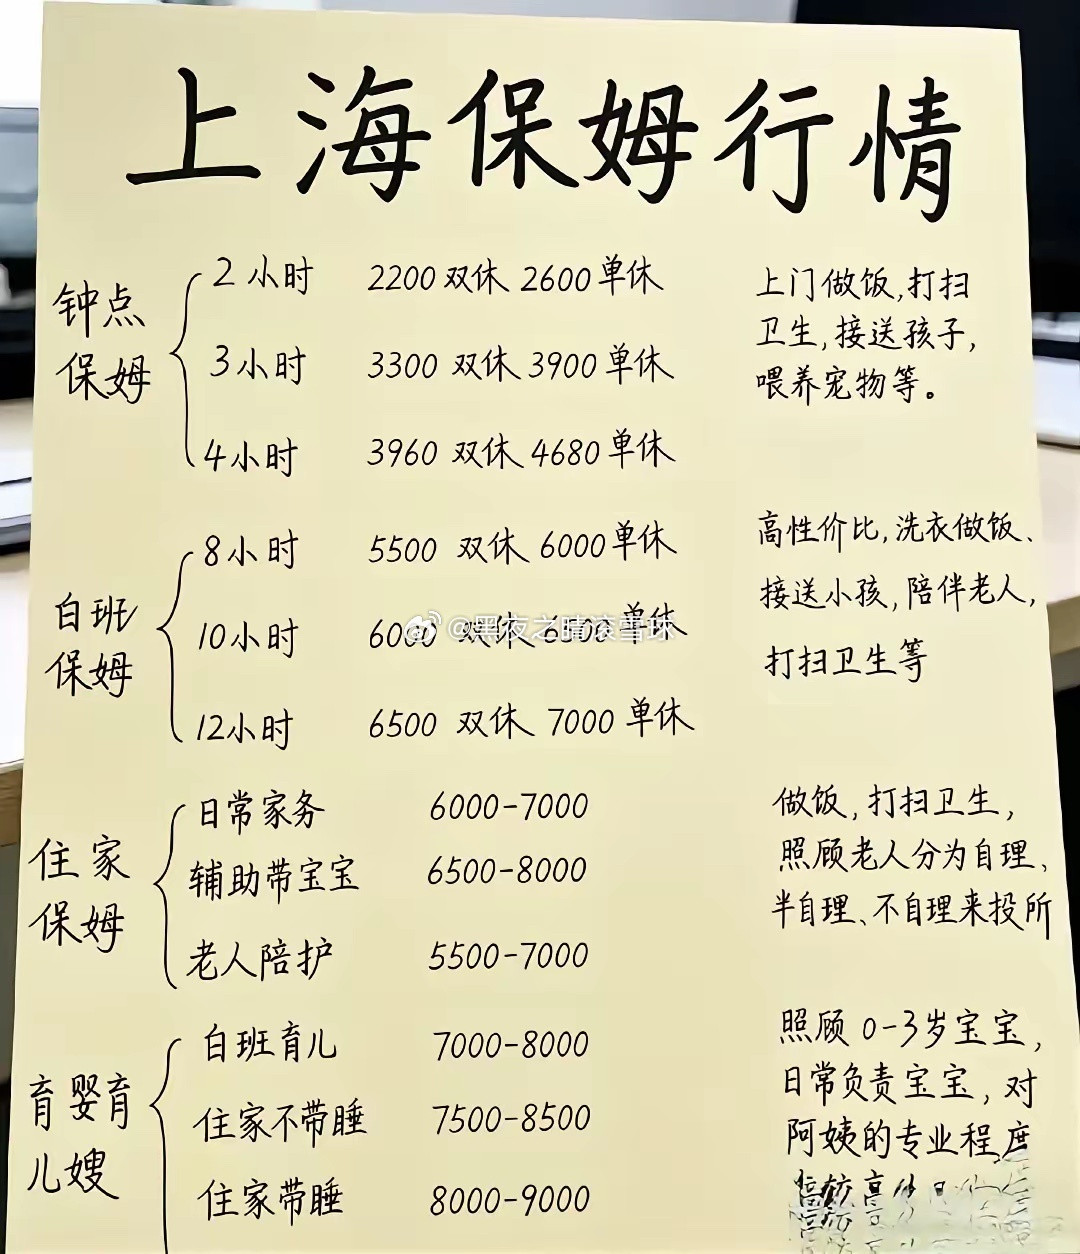 上海保姆行情
钟点
保姆
2小时 2200双休 2600单休
3小时 3300双休 3900单休
4小时 3960双休 4680单休
上门做饭,打扫
卫生,接送孩子,
喂养宠物等。
白班
保姆
8小时 5500双休 6000单休
10小时 6000双休 6500单休
12小时 6500双休 7000单休
高性价比,洗衣做饭、
接送小孩,陪伴老人,
打扫卫生等
@黑夜之晴滚雪球
住家
保姆
日常家务 6000-7000
辅助带宝宝 6500-8000
老人陪护 5500-7000
做饭,打扫卫生,
照顾老人分为自理、
半自理、不自理来投所
育婴育
儿嫂
白班育儿 7000-8000
住家不带睡 7500-8500
住家带睡 8000-9000
照顾0-3岁宝宝,
日常负责宝宝,对
阿姨的专业程度